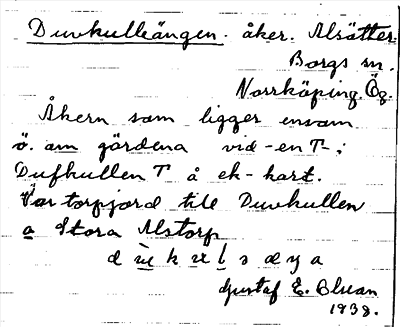 Duvkulleängen. åker. Alsätter.
Borgs sn.
Norrköping. Ög.
Åkern som ligger ensam
ö. om gärdena vid -en T-;
Dufkullen T å ek-kart.
Var torpjord till Duvkullen
a Stora Alstorp
Gustaf E. Bluan
1938.